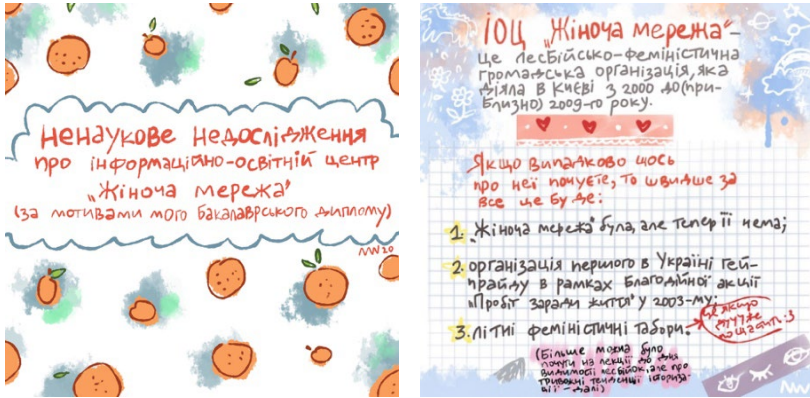 ненаукове недослідження
про інформаційно-освітній центр
„Жіноча мережа"
(за мотивами мого бакалаврського диплому)
NW 20
ІОЦ „Жіноча мережа"–
це лесбійсько-феміністична
громадська організація, яка
діяла в Києві з 2000 до (при-
близно) 2009-го року.
Якщо випадково щось
про неї почуєте, то швидше за
все це буде:
1. „Жіноча мережа" була, але тепер її нема;
2. організація першого в Україні гей-
прайду в рамках благодійної акції
„Пробіг заради життя" у 2003-му;
3. літні феміністичні табори.
це якщо
дууже
пощастить :3
(Більше можна було
почути на лекції до дня
видимості лесбійок, але про
тривожні тенденції історіза-
ції – далі)
NW